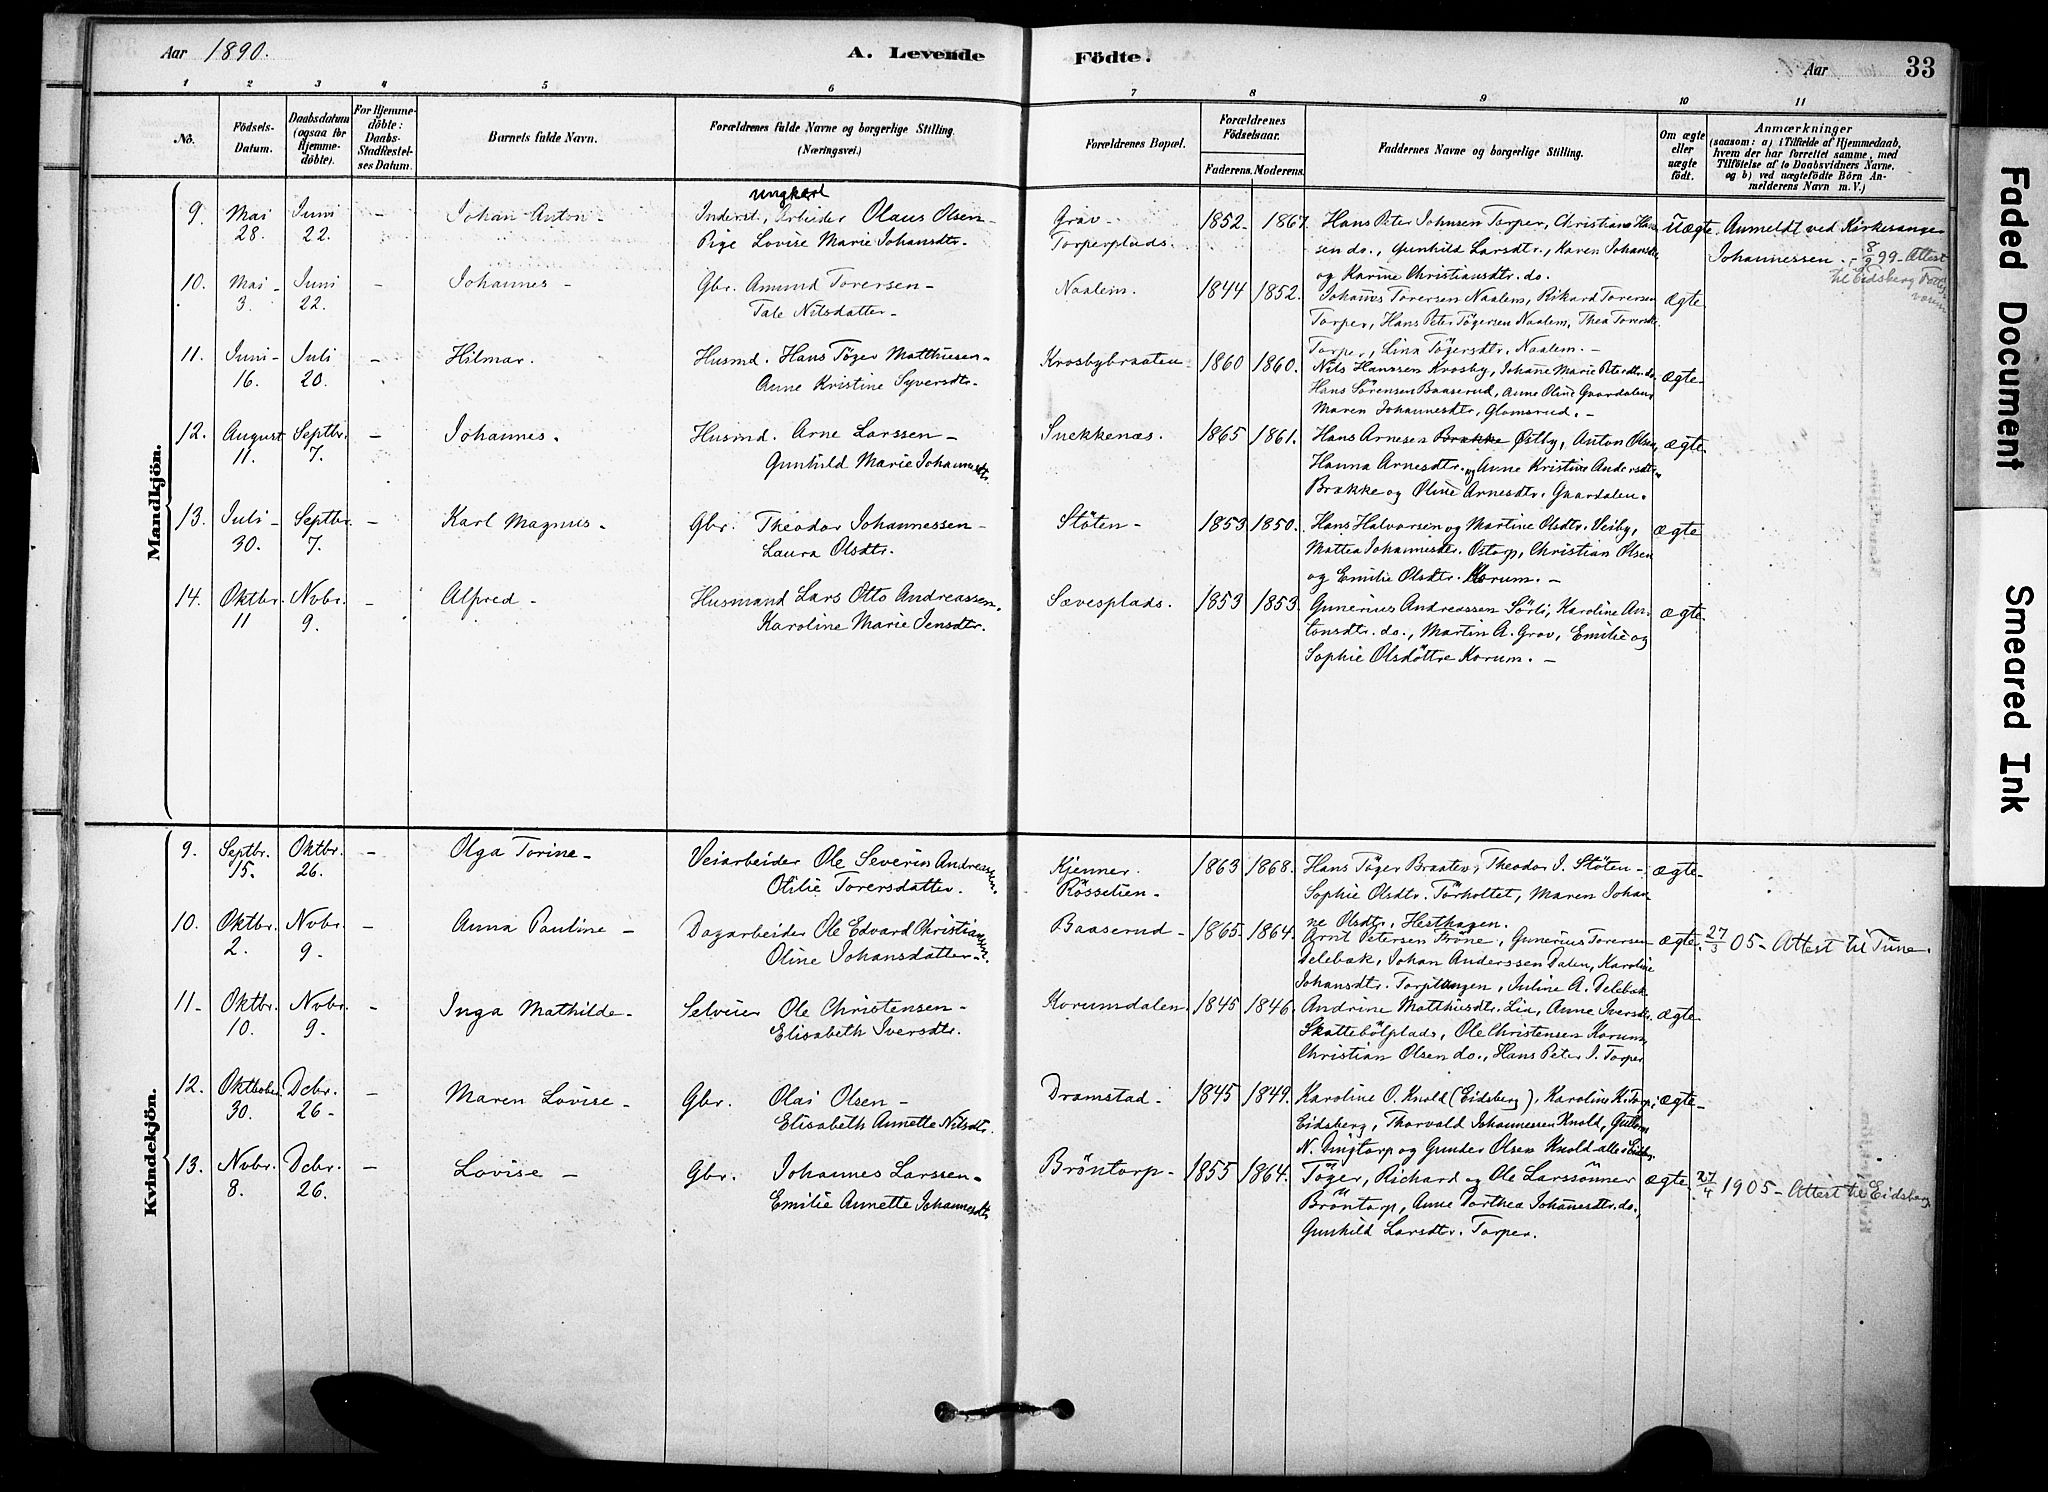 Aar 1890.
A. Levende Födte.
Aar
33
1 2 3 4 5 6 7 8 9 10 11
No.
Födsels-Datum.
Daabsdatum (ogsaa for Hjemme-döbte).
For Hjemme-döbte: Daabs-Stadfestel-ses Datum.
Barnets fulde Navn.
Forældrenes fulde Navne og borgerlige Stilling. (Næringsvei.)
Forældrenes Bopæl.
Forældrenes Födselsaar.
Faderens. Moderens.
Faddernes Navne og borgerlige Stilling.
Om ægte eller uægte födt.
Anmærkninger
(saasom: a) i Tilfælde af Hjemmedaab, hvem der har forrettet samme, med Tilföielse af to Daabsvidners Navne. og b) ved uægtefödte Börn Anmelderens Navn m. V.)
Mandkjön.
9. Mai 28. Juni 22. - Johan Anton -
ungkarl
Inderst, Arbeider Olaus Olsen -
Pige Lovise Marie Johansdtr.
Grav Torperplads. 1852. 1867.
Hans Peter Johnsen Torper, Christians Han-
sen do., Gunhild Larsdtr., Karen Johansdtr.
og Karine Christiansdtr. do.
Uægte. Anmeldt ved Kirkesanger
Johannessen. - 8/9 99 - Attest
til Eidsberg
10. Mai 3. Juni 22. - Johannes -
Gbr. Amund Torersen -
Tale Nilsdatter -
Naalem. 1844 1852.
Johans Torersen Naalem, Rikard Torersen
Torper, Hans Peter Tögersen Naalem, Thea Torersdtr.
Torper, Lina Tögersdtr. Naalem. -
ægte
11. Juni 16. Juli 20. - Hilmar.
Husmd. Hans Töger Matthiesen -
Anne Kristine Syversdtr.
Krosbybraaten - 1860 1860.
Nils Hanssen Krosby, Johane Marie Petersdtr. do.
Hans Sörensen Baaserud, Anne Oline Gaardalen,
Maren Johannesdtr. Glomsrud. -
ægte
12. August 11. Septbr. 7. - Johannes.
Husmd. Arne Larssen -
Gunhild Marie Johannesdtr.
Snekkenæs. 1865 1861.
Hans Arnesen Brække Østby, Anton Olsen,
Hanna Arnesdtr. og Anne Kristine Andersdtr.
Brække og Oline Arnesdtr. Gaardalen.
ægte
13. Juli 30. Septbr. 7. - Karl Magnus -
Gbr. Theodor Johannessen -
Laura Olsdtr.
Stöten - 1853 1850.
Hans Halvorsen og Martine Olsdtr. Veiby,
Mattea Johannesdtr. Ostorp, Christian Olsen
og Emilie Olsdtr. Korum. -
ægte
14. Oktbr. 11 Novbr. 9. - Alfred -
Husmand Lars Otto Andreassen.
Karoline Marie Jensdtr.
Sævesplads. 1853 1853.
Gunerius Andreassen Sörli, Karoline An-
tonsdtr. do., Martin A. Grav, Emilie og
Sophie Olsdöttre Korum. -
ægte
Kvindekjön.
9. Septbr. 15. Oktbr. 26. - Olga Torine -
Veiarbeider Ole Severin Andreassen.
Otilie Torersdatter.
Kjenner Rössetien - 1863 1868.
Hans Töger Braaten, Theodor J. Stöten -
Sophie Olsdtr. Törholtet, Maren Johan-
ne Olsdtr. Hesthagen.
ægte
10. Oktbr. 2. Novbr. 9. - Anna Pauline -
Dagarbeider Ole Edvard Christiansen.
Oline Johansdatter -
Baaserud - 1865. 1864.
Arnt Petersen Fröne, Gunerius Torersen
Delebæk, Johan Anderssen Dalen, Karoline
Johansdtr. Torptangen, Juline A. Delebæk
ægte. 27/3 05 - Attest til Tune.
11 - Oktbr. 10. Novbr. 9. - Inga Mathilde -
Selveier Ole Christensen -
Elisabeth Iversdtr.
Korumdalen 1845 1846.
Andrine Matthisdtr. Lia, Anne Iversdtr.
Skattebölplads, Ole Christensen Korum,
Christian Olsen do., Hans Peter J. Torper
ægte
12. Oktober 30. Dcbr. 26 - - Maren Lovise -
Gbr. Olai Olsen -
Elisabeth Annette Nilsdtr.
Dramstad - 1845 1849.
Karoline O. Knold (Eidsberg), Karoline K. Torp
Eidsberg, Thorvald Johannessen Knold,
N. Dingtorp og Gunder Olsen Knold alle i Eidsbg.
ægte
13. Novbr. 8. Dcbr. 26. - Lovise -
Gbr. Johannes Larssen -
Emilie Annette Johannesdtr.
Bröntorp - 1855 1864.
Töger, Richard og Ole Larssönner
Bröntorp, Anne Dorthea Johanesdtr. do.,
Gunhild Larsdtr. Torper.
ægte. 27/4 1905 - Attest til Eidsberg.
Faded Document
Smeared Ink